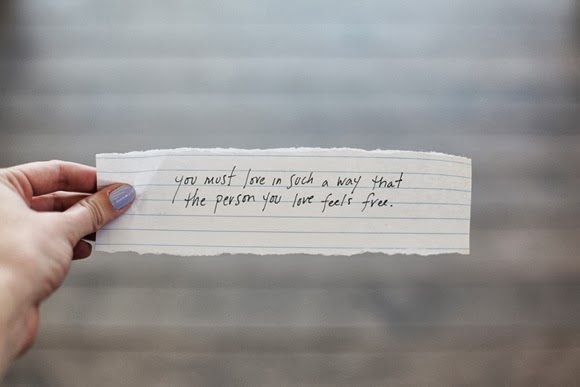 you must love in such a way that
the person you love feels free.